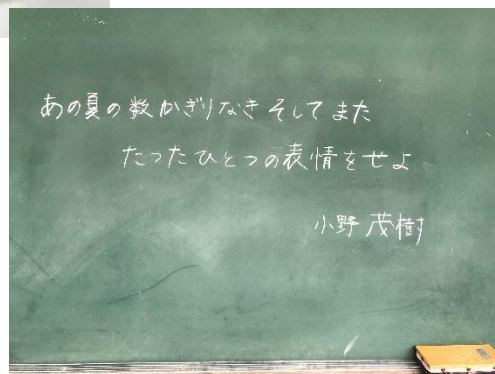 あの夏の数かぎりなきそしてまた
たったひとつの表情をせよ
小野茂樹